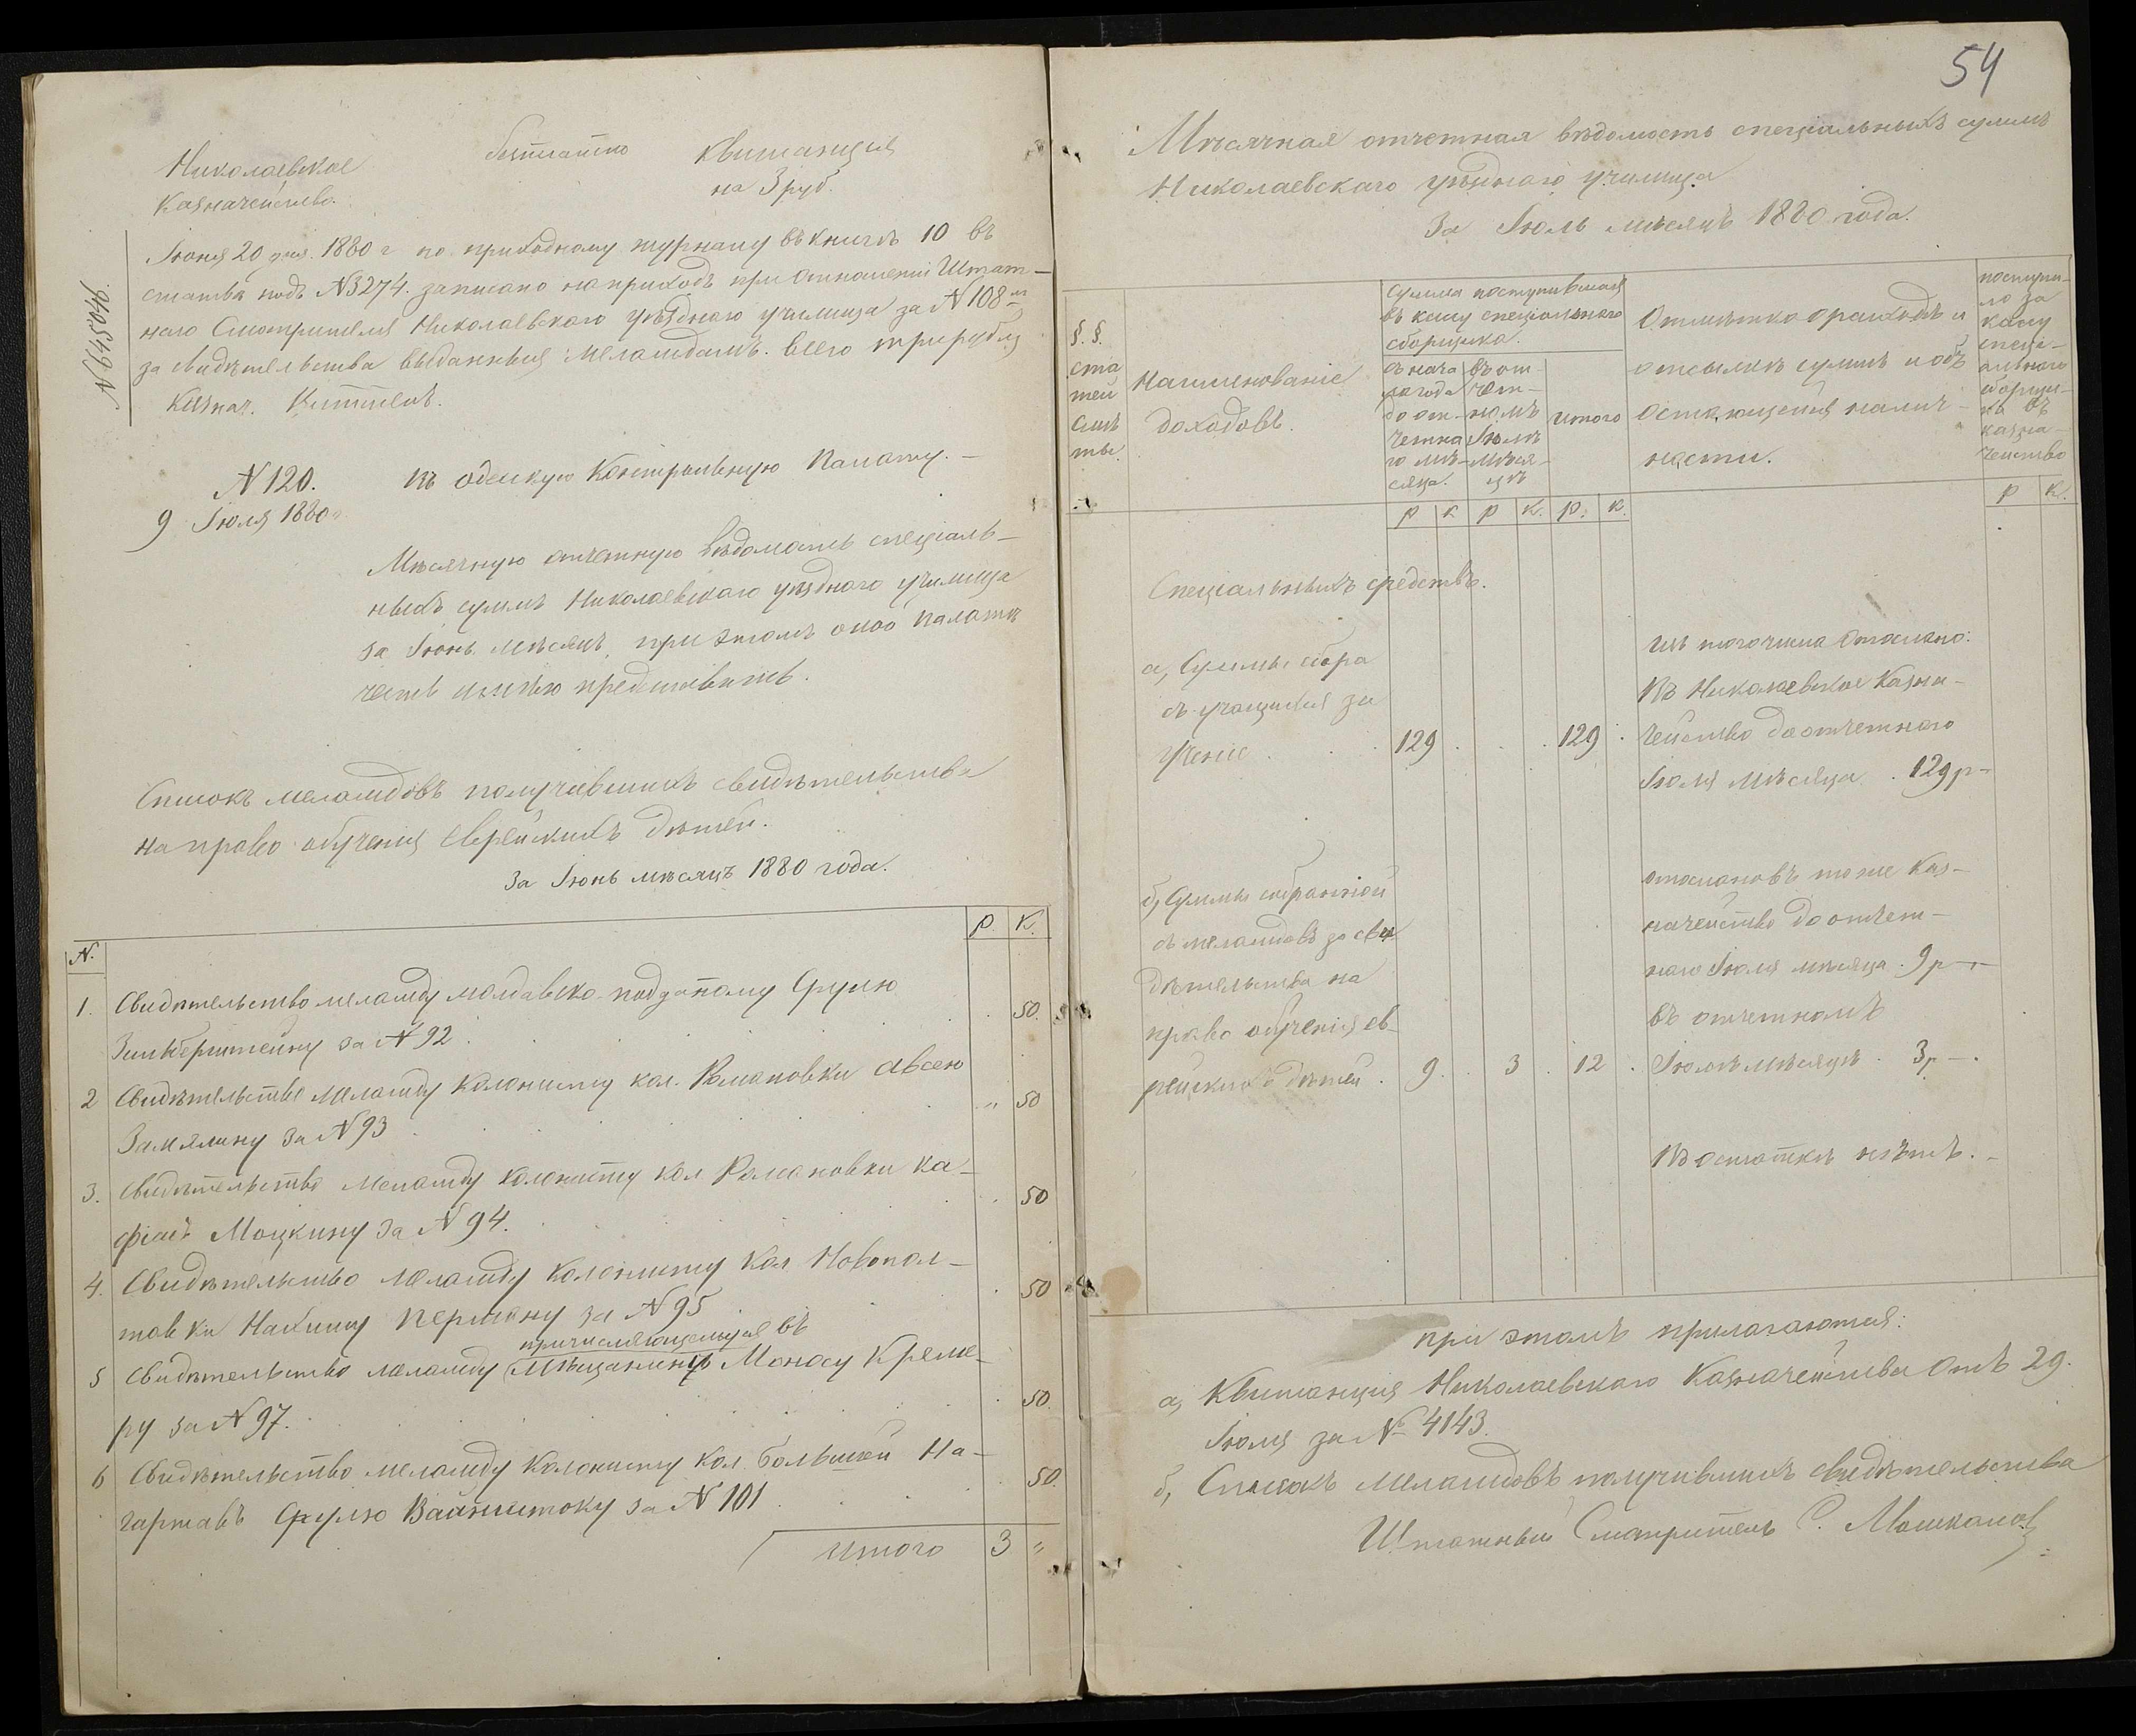 Николаевское безплатно Квитанція
Казначейство. на 3 руб.
№ 645046.
Іюня 20 дня 1880 г по приходному журналу въ книгѣ 10 въ
статьѣ подъ №3274. записано на приходъ при отношеніи Штат-
наго Смотрителя Николаевскаго уѣзднаго училища за №108м
за свидѣтельства выданныя меламдамъ. всего три рубля
Казнач.
№ 120. Въ Одескую Контрольную Палату. -
9 Іюля 1880 г.
Мѣсячную отчетную вѣдомость спеціаль-
ныхъ суммъ Николаевскаго уѣзднаго училища
за Іюнь мѣсяцъ, при этомъ оной Палатѣ
честь имѣю представить.
Списокъ меламдовъ получившихъ свидѣтельства
на право обученія Еврейскихъ дѣтей.
За Іюнь мѣсяцъ 1880 года.
№. Р. К.
1. Свидѣтельство меламду молдавско-подданому Срулю
за № 92 . 50.
2 Свидѣтельство меламду колонисту кол. Романовки Овсею
Замялину за №93 " 50
3. Свидѣтельство меламду колонисту кол Романовки Ка-
фіалъ Моцкину за №94. . 50
4. Свидѣтельство меламду колонисту кол Новопол-
тавки Нахиму Перману за №95 . 50
причисляющемуся въ
5 Свидѣтельство меламду Мѣщанину Моносу Креме-
ру за №97. . 50.
6 Свидѣтельство меламду колонисту кол. Большой На-
гартавъ Срулю Вайнштоку за № 101 . 50.
Итого 3 "
54
Мѣсячная отчетная вѣдомость спеціальныхъ суммъ
Николаевскаго уѣзднаго училища
За Іюль мѣсяцъ 1880 года.
§. §.
ста
тей
Смѣ
ты.
Наименованіе
доходовъ.
Сумма поступившая
въ кассу спеціальнаго
сборщика.
съ нача
ла года
до от-
четна
го мѣ-
сяца.
въ от-
чет-
номъ
Іюлѣ
мѣся-
цѣ
итого
Отмѣтка о расходѣ и
отсылкѣ суммъ и объ
остающейся налич-
ности.
поступи-
ло за
кассу
спеці-
альнаго
сборщи-
ка въ
казна-
чейство
Р К Р К. Р. К. Р К.
Спеціальныхъ средствъ.
а, Суммы сбора
съ учащихся за
Ученіе . . . 129 . . . 129 .
изъ того числа отослано:
Въ Николаевское Казна-
чейство до отчетнаго
Іюля мѣсяца . 129 р -
б, Суммы собранной
съ меламдовъ за сви
дѣтельства на
право обученія ев-
рейскихъ дѣтей . 9 . . 3 . 12 .
отослано въ тоже Каз-
начейство до отчет-
наго Іюля мѣсяца . 9 р -
въ отчетномъ
Іюлѣ мѣсяцѣ . 3 р - .
Въ остаткѣ нѣтъ. -
При этомъ прилагаются:
а, Квитанція Николаевскаго Казначейства отъ 29.
Іюля за № 4143.
б, Списокъ меламдовъ получившихъ свидѣтельства
Штатный Смотритель С.